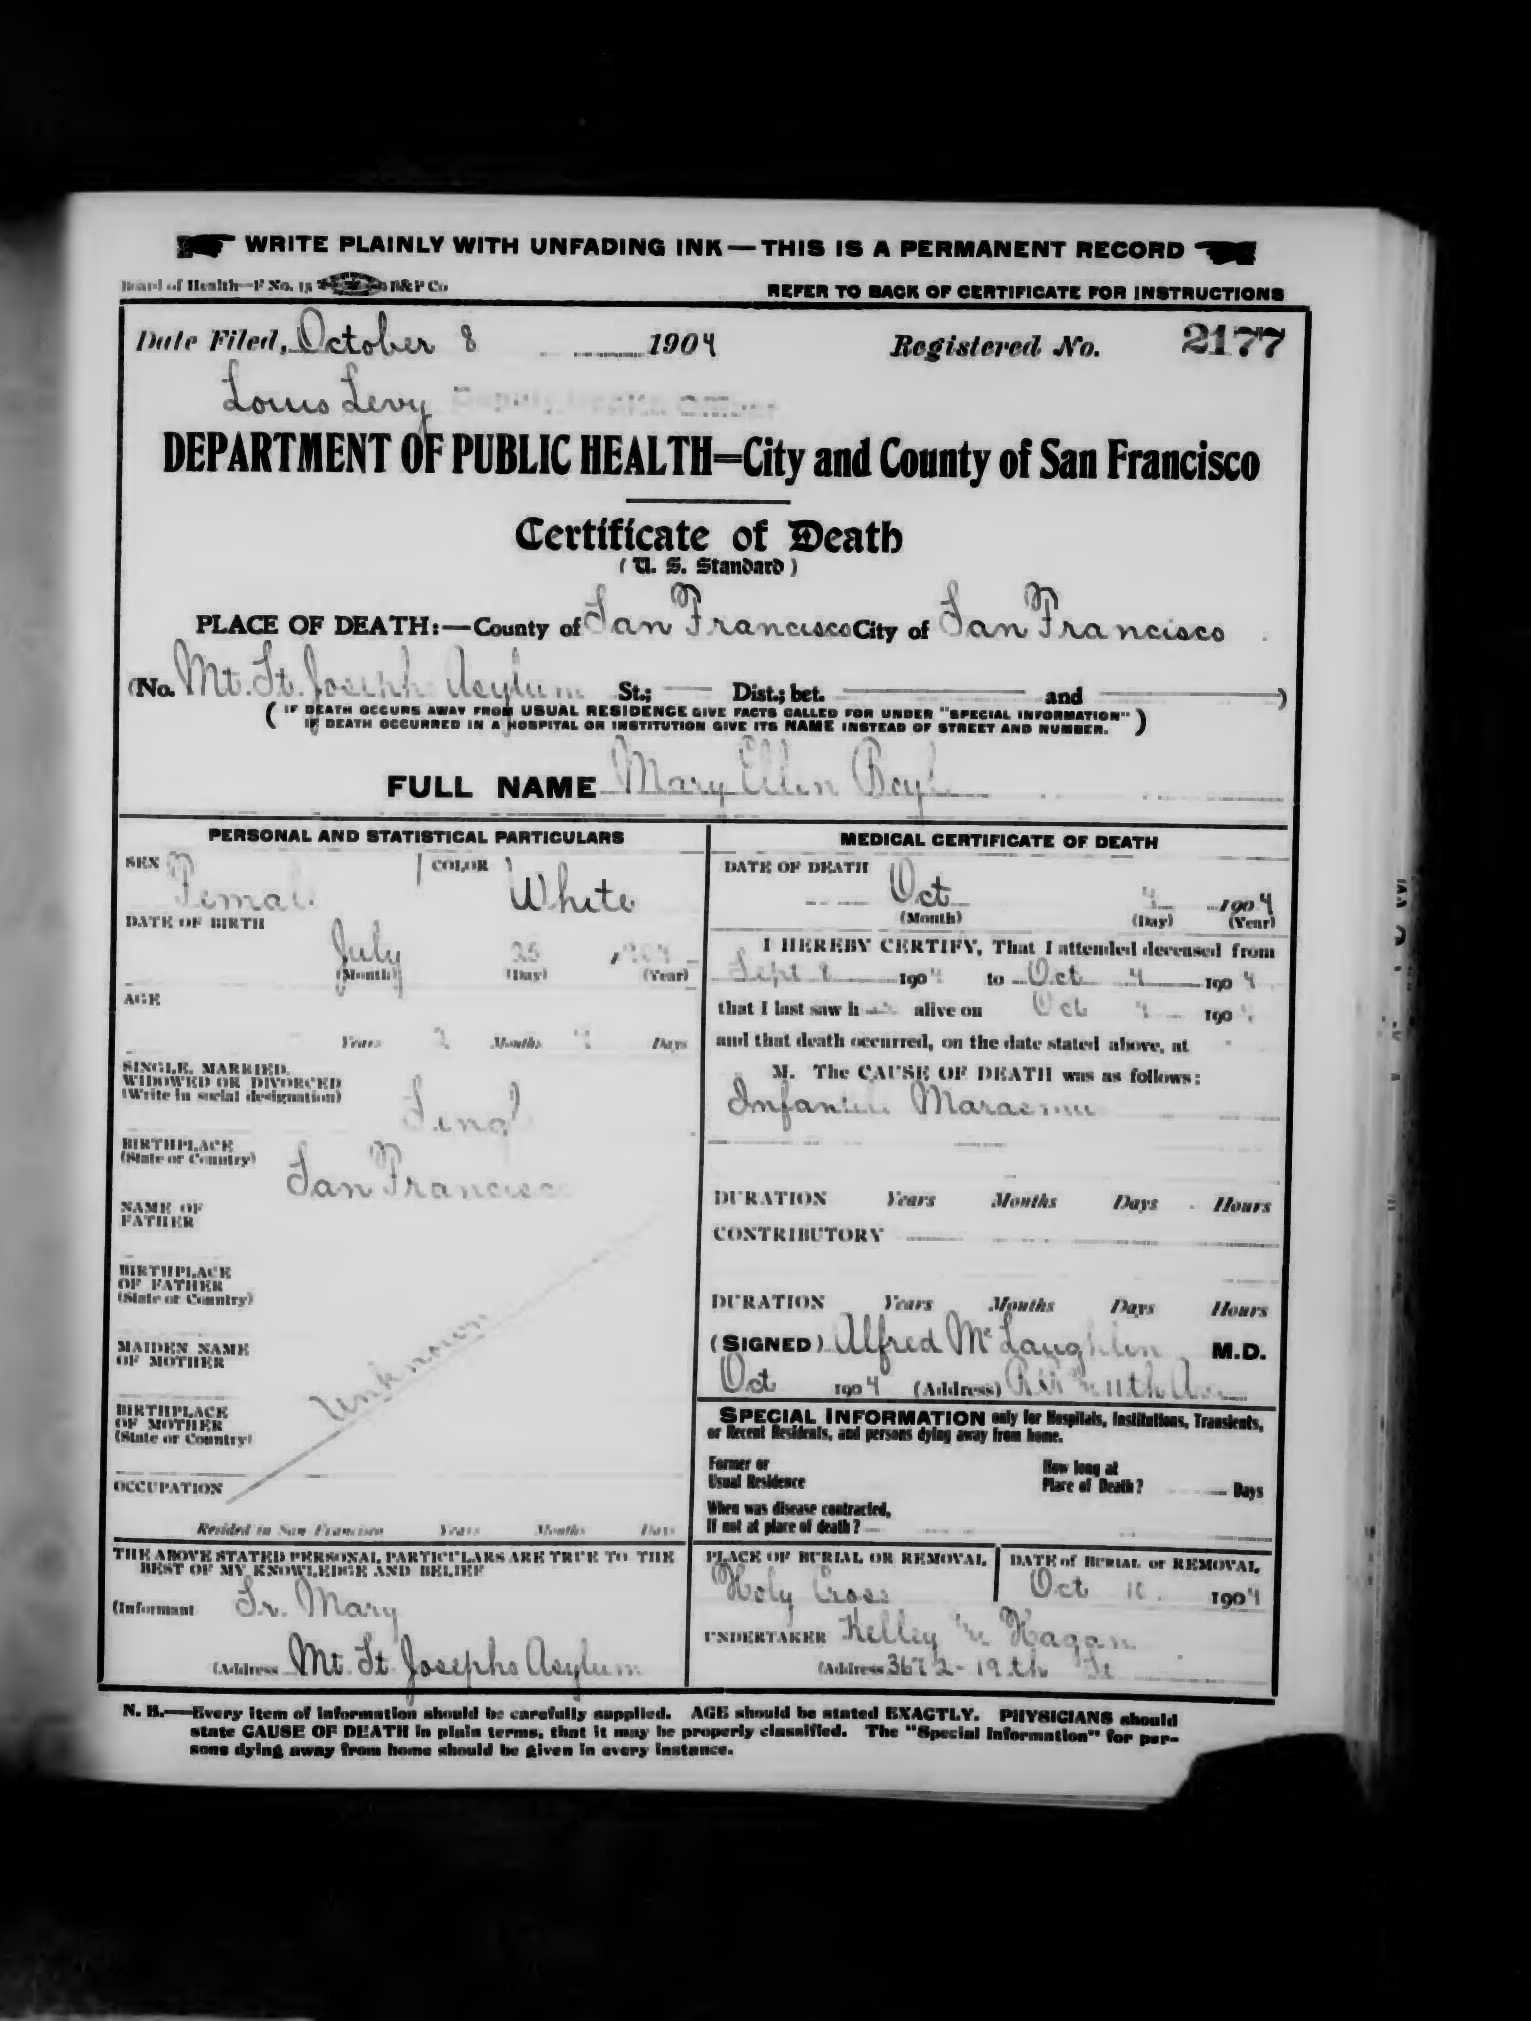 WRITE PLAINLY WITH UNFADING INK — THIS IS A PERMANENT RECORD
Board of Health—F No. 15 B&P Co
REFER TO BACK OF CERTIFICATE FOR INSTRUCTIONS
Date Filed, October 8 1904 Registered No. 2177
Louis Levy Deputy Health Officer
DEPARTMENT OF PUBLIC HEALTH=City and County of San Francisco
Certificate of Death
(U. S. Standard)
PLACE OF DEATH:—County of San Francisco City of San Francisco
(No. Mt. St. Josephs Asylum St.; Dist.; bet. and )
( IF DEATH OCCURS AWAY FROM USUAL RESIDENCE GIVE FACTS CALLED FOR UNDER "SPECIAL INFORMATION" )
IF DEATH OCCURRED IN A HOSPITAL OR INSTITUTION GIVE ITS NAME INSTEAD OF STREET AND NUMBER.
FULL NAME Mary Ellen Boyle
PERSONAL AND STATISTICAL PARTICULARS
SEX Female COLOR White
DATE OF BIRTH
July 25, 1904
(Month) (Day) (Year)
AGE
Years 2 Months Days
SINGLE, MARRIED,
WIDOWED OR DIVORCED
(Write in social designation)
Single
BIRTHPLACE
(State or Country)
San Francisco
NAME OF
FATHER
BIRTHPLACE
OF FATHER
(State or Country)
MAIDEN NAME
OF MOTHER
Unknown
BIRTHPLACE
OF MOTHER
(State or Country)
OCCUPATION
Resided in San Francisco Years Months Days
THE ABOVE STATED PERSONAL PARTICULARS ARE TRUE TO THE
BEST OF MY KNOWLEDGE AND BELIEF
(Informant Sr. Mary
(Address Mt. St. Josephs Asylum
MEDICAL CERTIFICATE OF DEATH
DATE OF DEATH
Oct 4 1904
(Month) (Day) (Year)
I HEREBY CERTIFY, That I attended deceased from
Sept 8 1904 to Oct 4 1904
that I last saw h alive on Oct 4 1904
and that death occurred, on the date stated above, at
M. The CAUSE OF DEATH was as follows:
Infantile
DURATION Years Months Days Hours
CONTRIBUTORY
DURATION Years Months Days Hours
(SIGNED) Alfred McLaughlin M.D.
Oct 1904 (Address) 11th Ave
SPECIAL INFORMATION only for Hospitals, Institutions, Transients,
or Recent Residents, and persons dying away from home.
Former or
Usual Residence
How long at
Place of Death? Days
When was disease contracted,
If not at place of death?
PLACE OF BURIAL OR REMOVAL
Holy Cross
DATE of BURIAL or REMOVAL
Oct 1904
UNDERTAKER Kelley Hagan
(Address 3672-19th St
N. B.—Every item of information should be carefully supplied. AGE should be stated EXACTLY. PHYSICIANS should
state CAUSE OF DEATH in plain terms, that it may be properly classified. The "Special Information" for per-
sons dying away from home should be given in every instance.